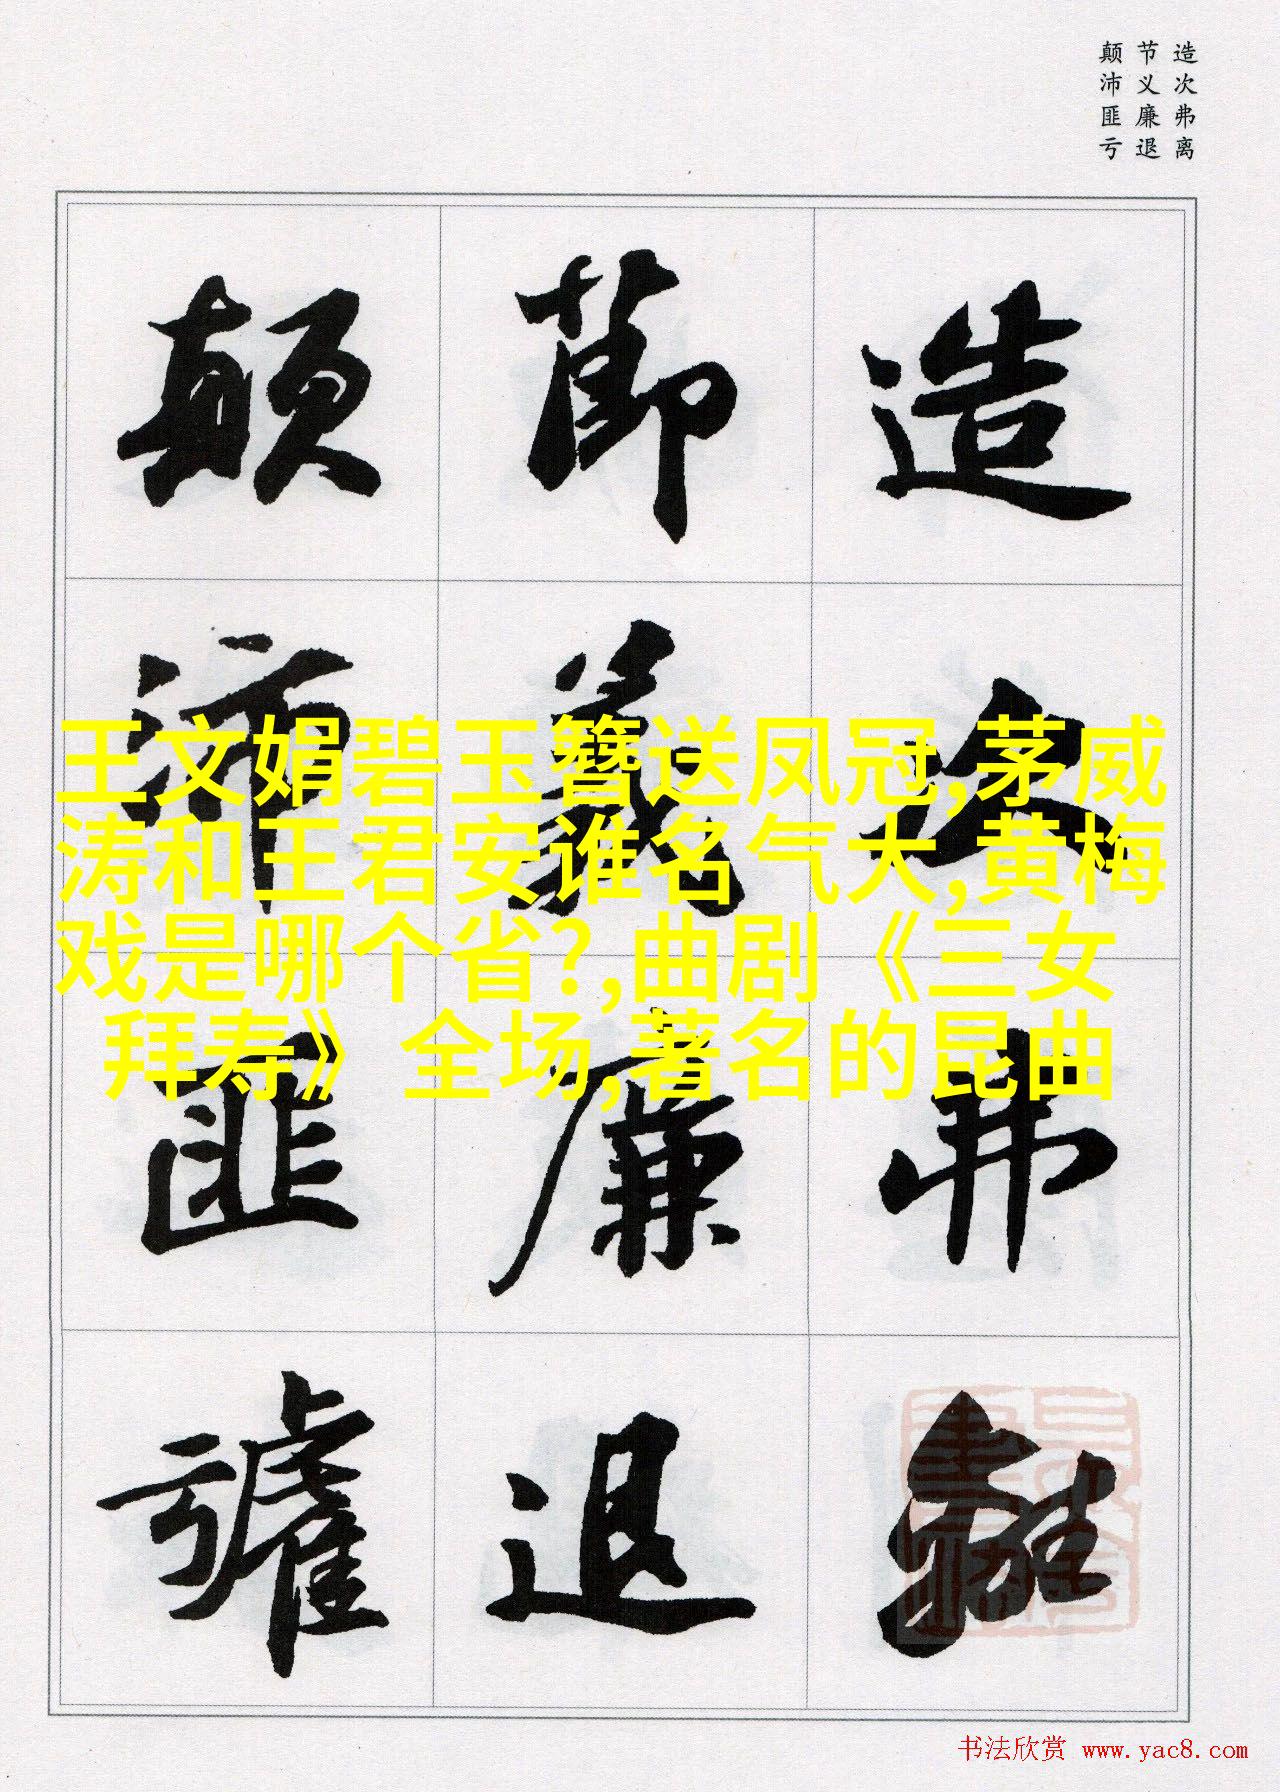 造次弗离
节义廉退
颠沛匪亏
造次弗離
節義廉退
顛沛匪虧
王文娟碧玉簪送凤冠,茅威
涛和王君安谁名气大,黄梅
戏是哪个省?,曲剧《三女
拜寿》全场,著名的昆曲
书法欣赏 www.yac8.com